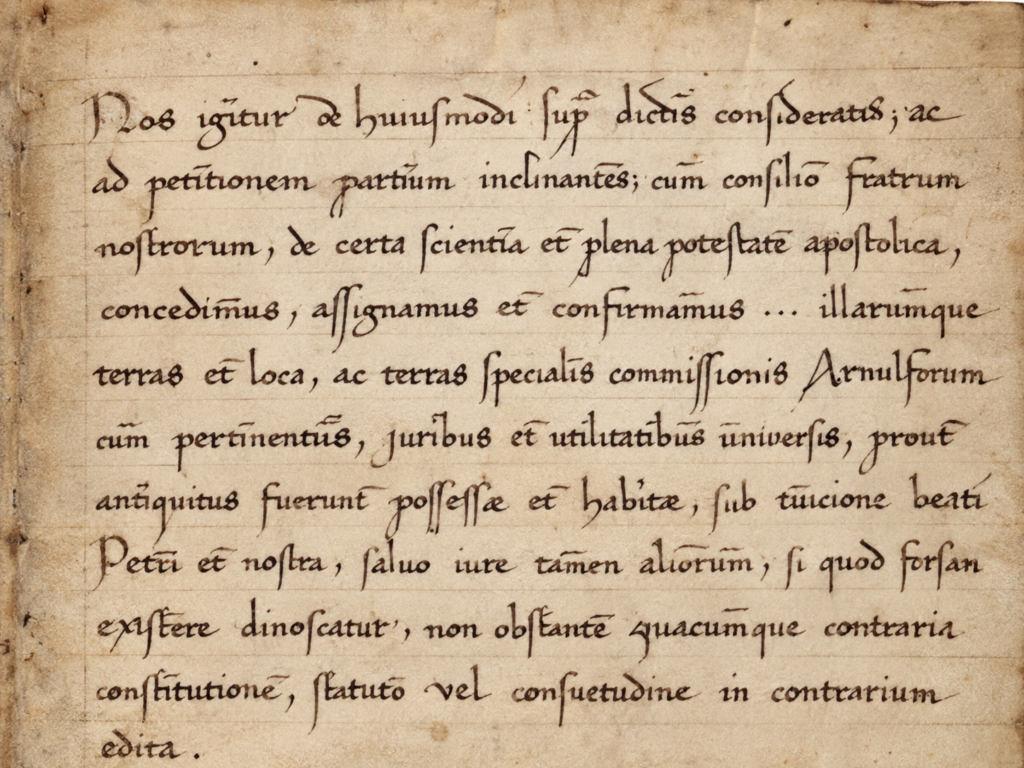 Nos igitur de huiusmodi sup̄ dictis consideratis; ac
ad petitionem partium inclinantes; cum consilio fratrum
nostrorum, de certa scientia et plena potestate apostolica,
concedimus, assignamus et confirmamus ... illarumque
terras et loca, ac terras specialis commissionis Arnulforum
cum pertinentus, juribus et utilitatibus universis, prout
antiquitus fuerunt possessæ et habitæ, sub tuicione beati
Petri et nostra, saluo iure tamen aliorum, si quod forsan
existere dinoscatur, non obstante quacumque contraria
constitutione, statuto vel consuetudine in contrarium
edita.